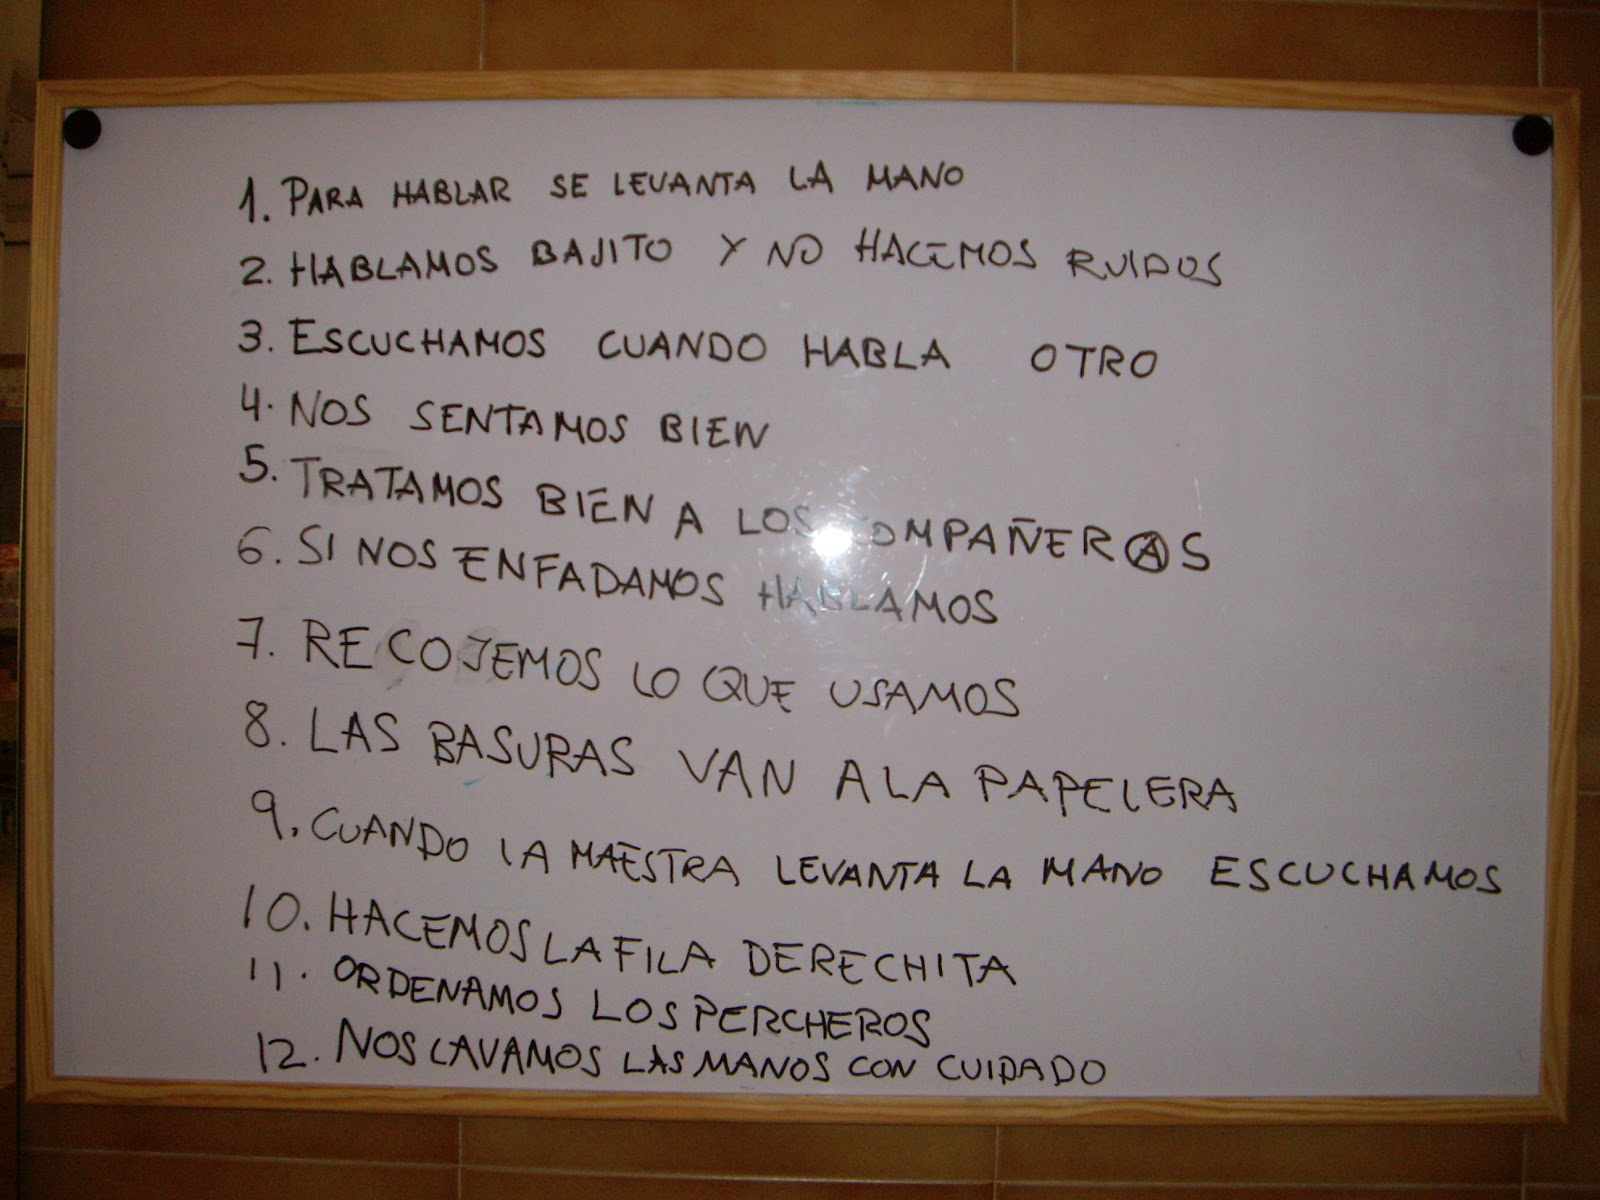 1. PARA HABLAR SE LEVANTA LA MANO
2. HABLAMOS BAJITO Y NO HACEMOS RUIDOS
3. ESCUCHAMOS CUANDO HABLA OTRO
4. NOS SENTAMOS BIEN
5. TRATAMOS BIEN A LOS COMPAÑER@S
6. SI NOS ENFADAMOS HABLAMOS
7. RECOJEMOS LO QUE USAMOS
8. LAS BASURAS VAN A LA PAPELERA
9. CUANDO LA MAESTRA LEVANTA LA MANO ESCUCHAMOS
10. HACEMOS LA FILA DERECHITA
11. ORDENAMOS LOS PERCHEROS
12. NOS LAVAMOS LAS MANOS CON CUIDADO